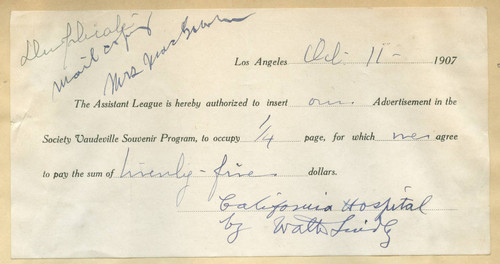 Duplicate
mail copy
Mrs
Los Angeles Oct 11- 1907
The Assistant League is hereby authorized to insert our Advertisement in the
Society Vaudeville Souvenir Program, to occupy 1/4 page, for which we agree
to pay the sum of twenty-five dollars.
California Hospital
by Walter Lindley